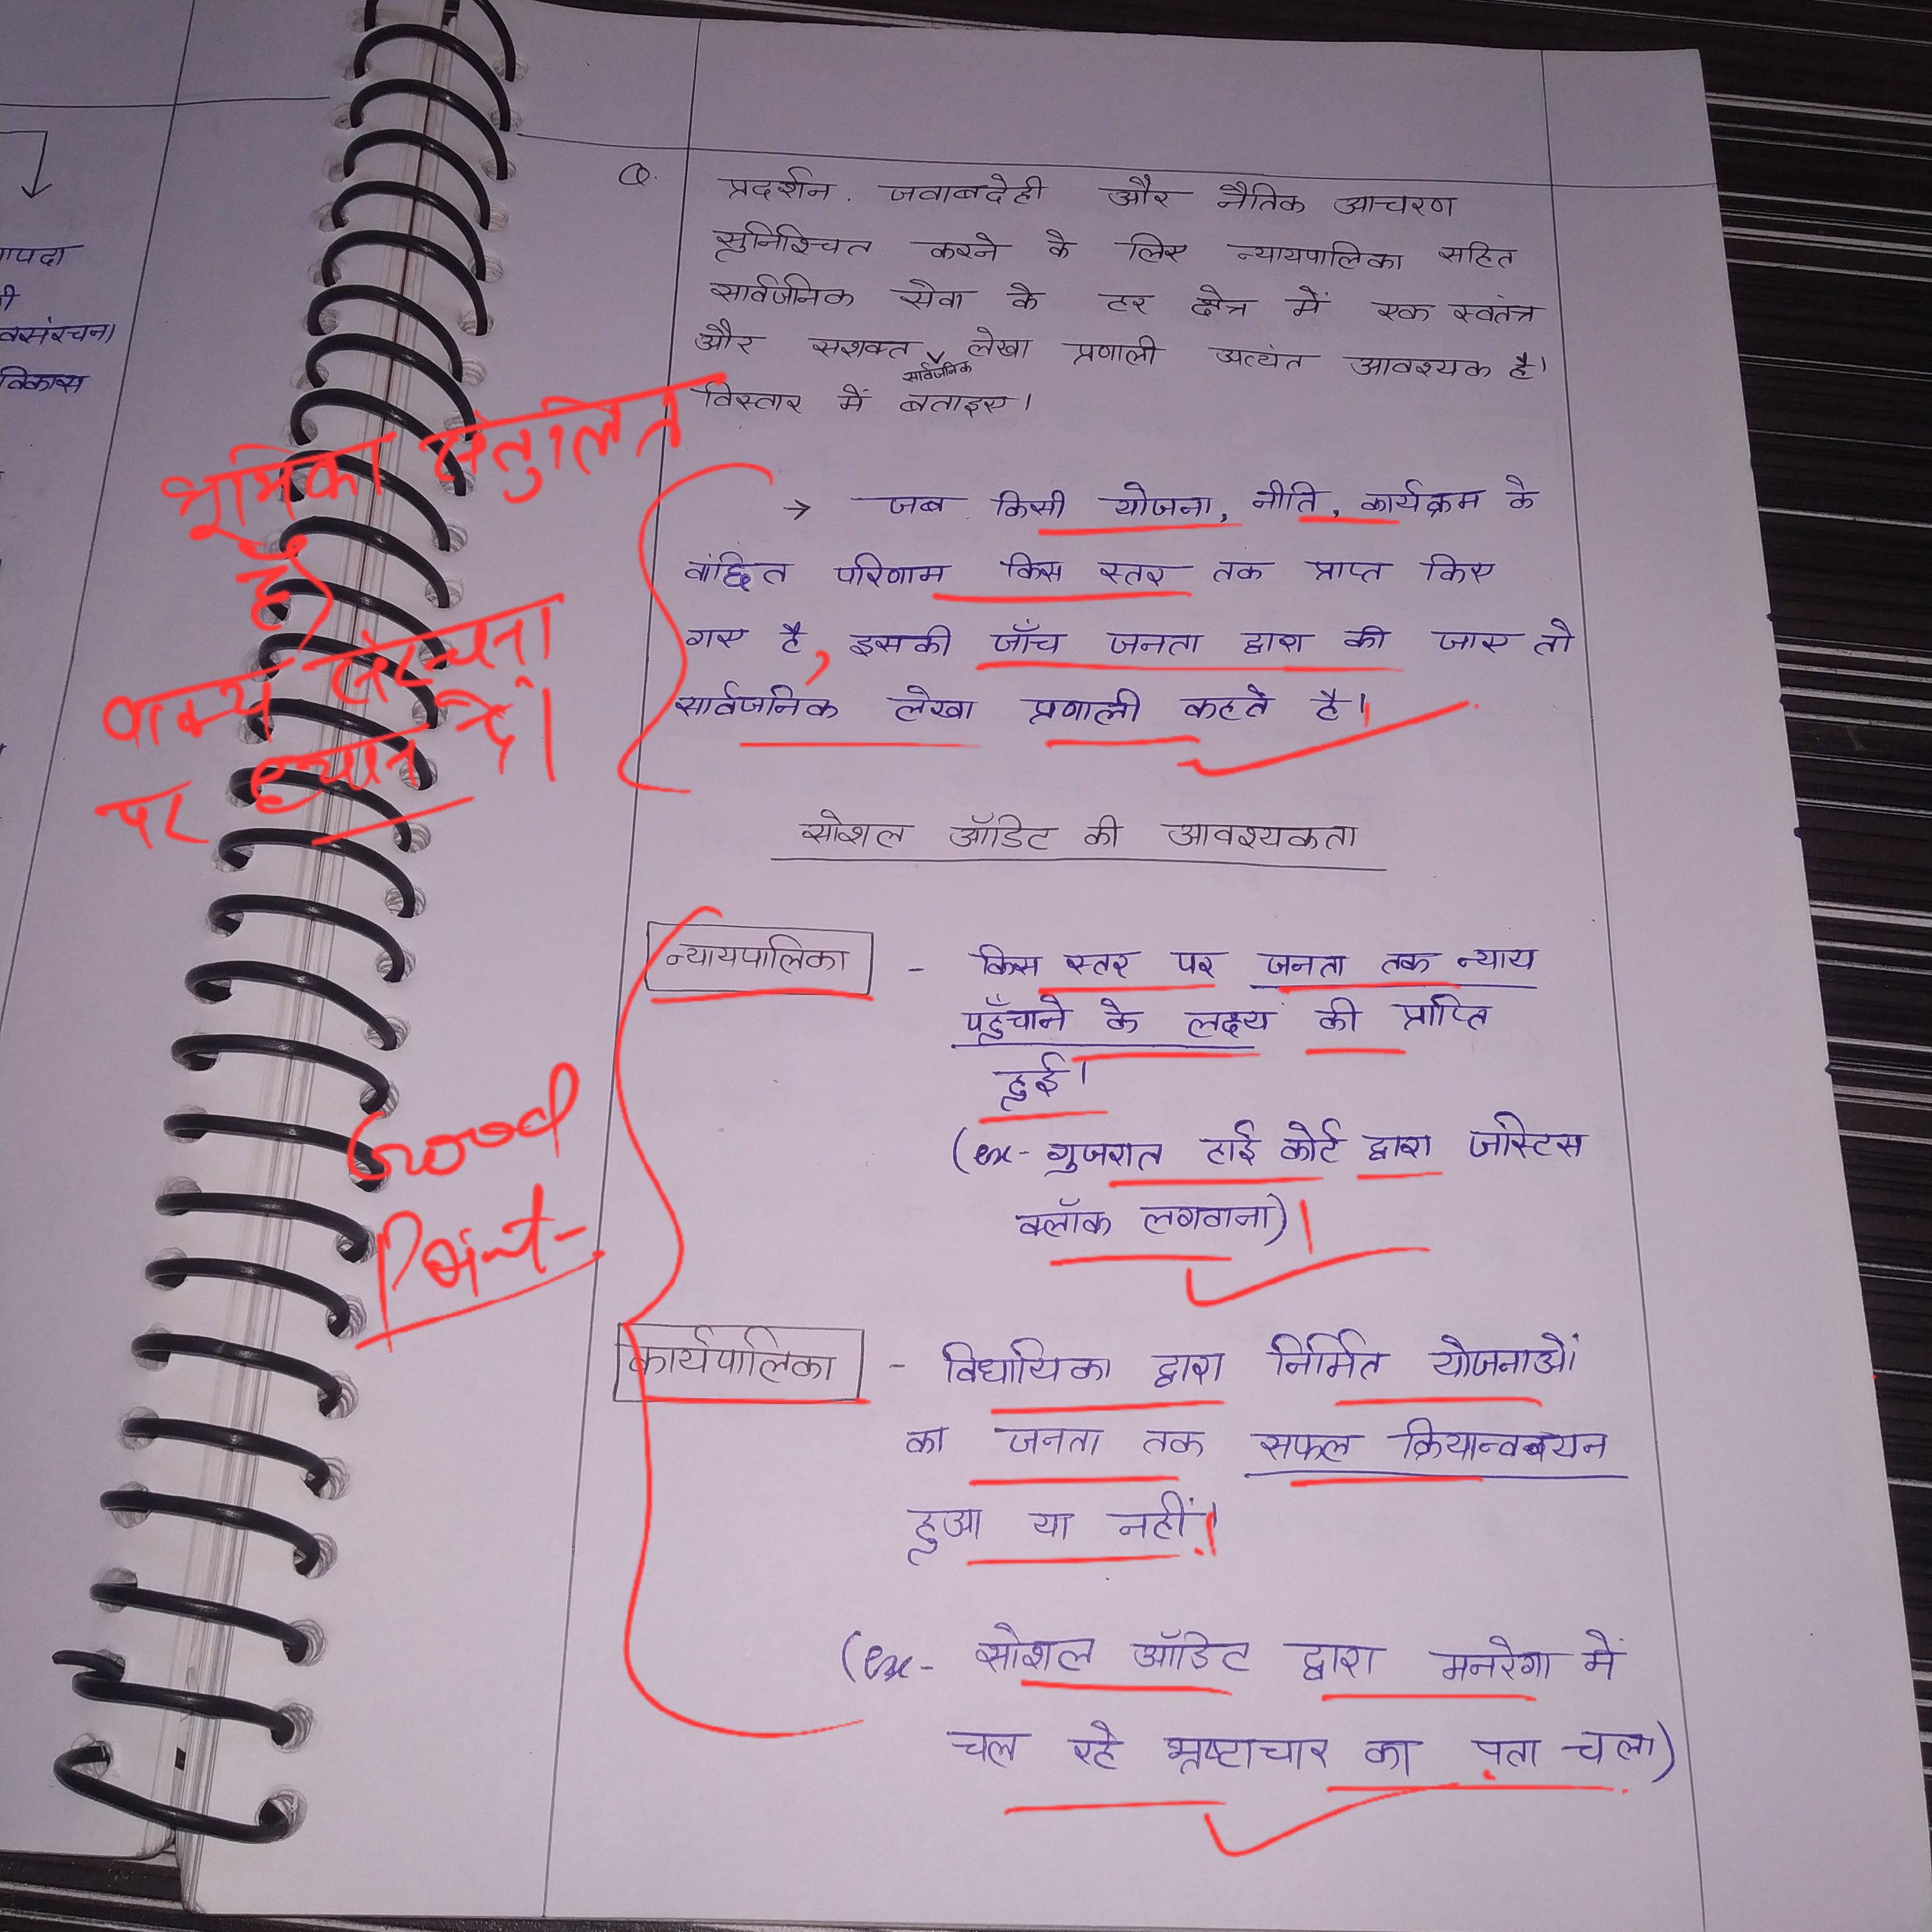 Q. प्रदर्शन, जवाबदेही और नैतिक आचरण
सुनिश्चित करने के लिए न्यायपालिका सहित
सार्वजनिक सेवा के हर क्षेत्र में एक स्वतंत्र
और सशक्त सार्वजनिक लेखा प्रणाली अत्यंत आवश्यक है।
विस्तार में बताइए।
→ जब किसी योजना, नीति, कार्यक्रम के
वांछित परिणाम किस स्तर तक प्राप्त किए
गए है, इसकी जाँच जनता द्वारा की जाए तो
सार्वजनिक लेखा प्रणाली कहते है।
भूमिका संतुलित
है
वाक्य संरचना
पर ध्यान दें।
सोशल ऑडिट की आवश्यकता
न्यायपालिका - किस स्तर पर जनता तक न्याय
पहुँचाने के लक्ष्य की प्राप्ति
हुई।
(ex- गुजरात हाई कोर्ट द्वारा जस्टिस
क्लॉक लगवाना)
Good
Point-
कार्यपालिका - विधायिका द्वारा निर्मित योजनाओं
का जनता तक सफल क्रियान्वयन
हुआ या नहीं।
(ex- सोशल ऑडिट द्वारा मनरेगा में
चल रहे भ्रष्टाचार का पता चला)
विकास